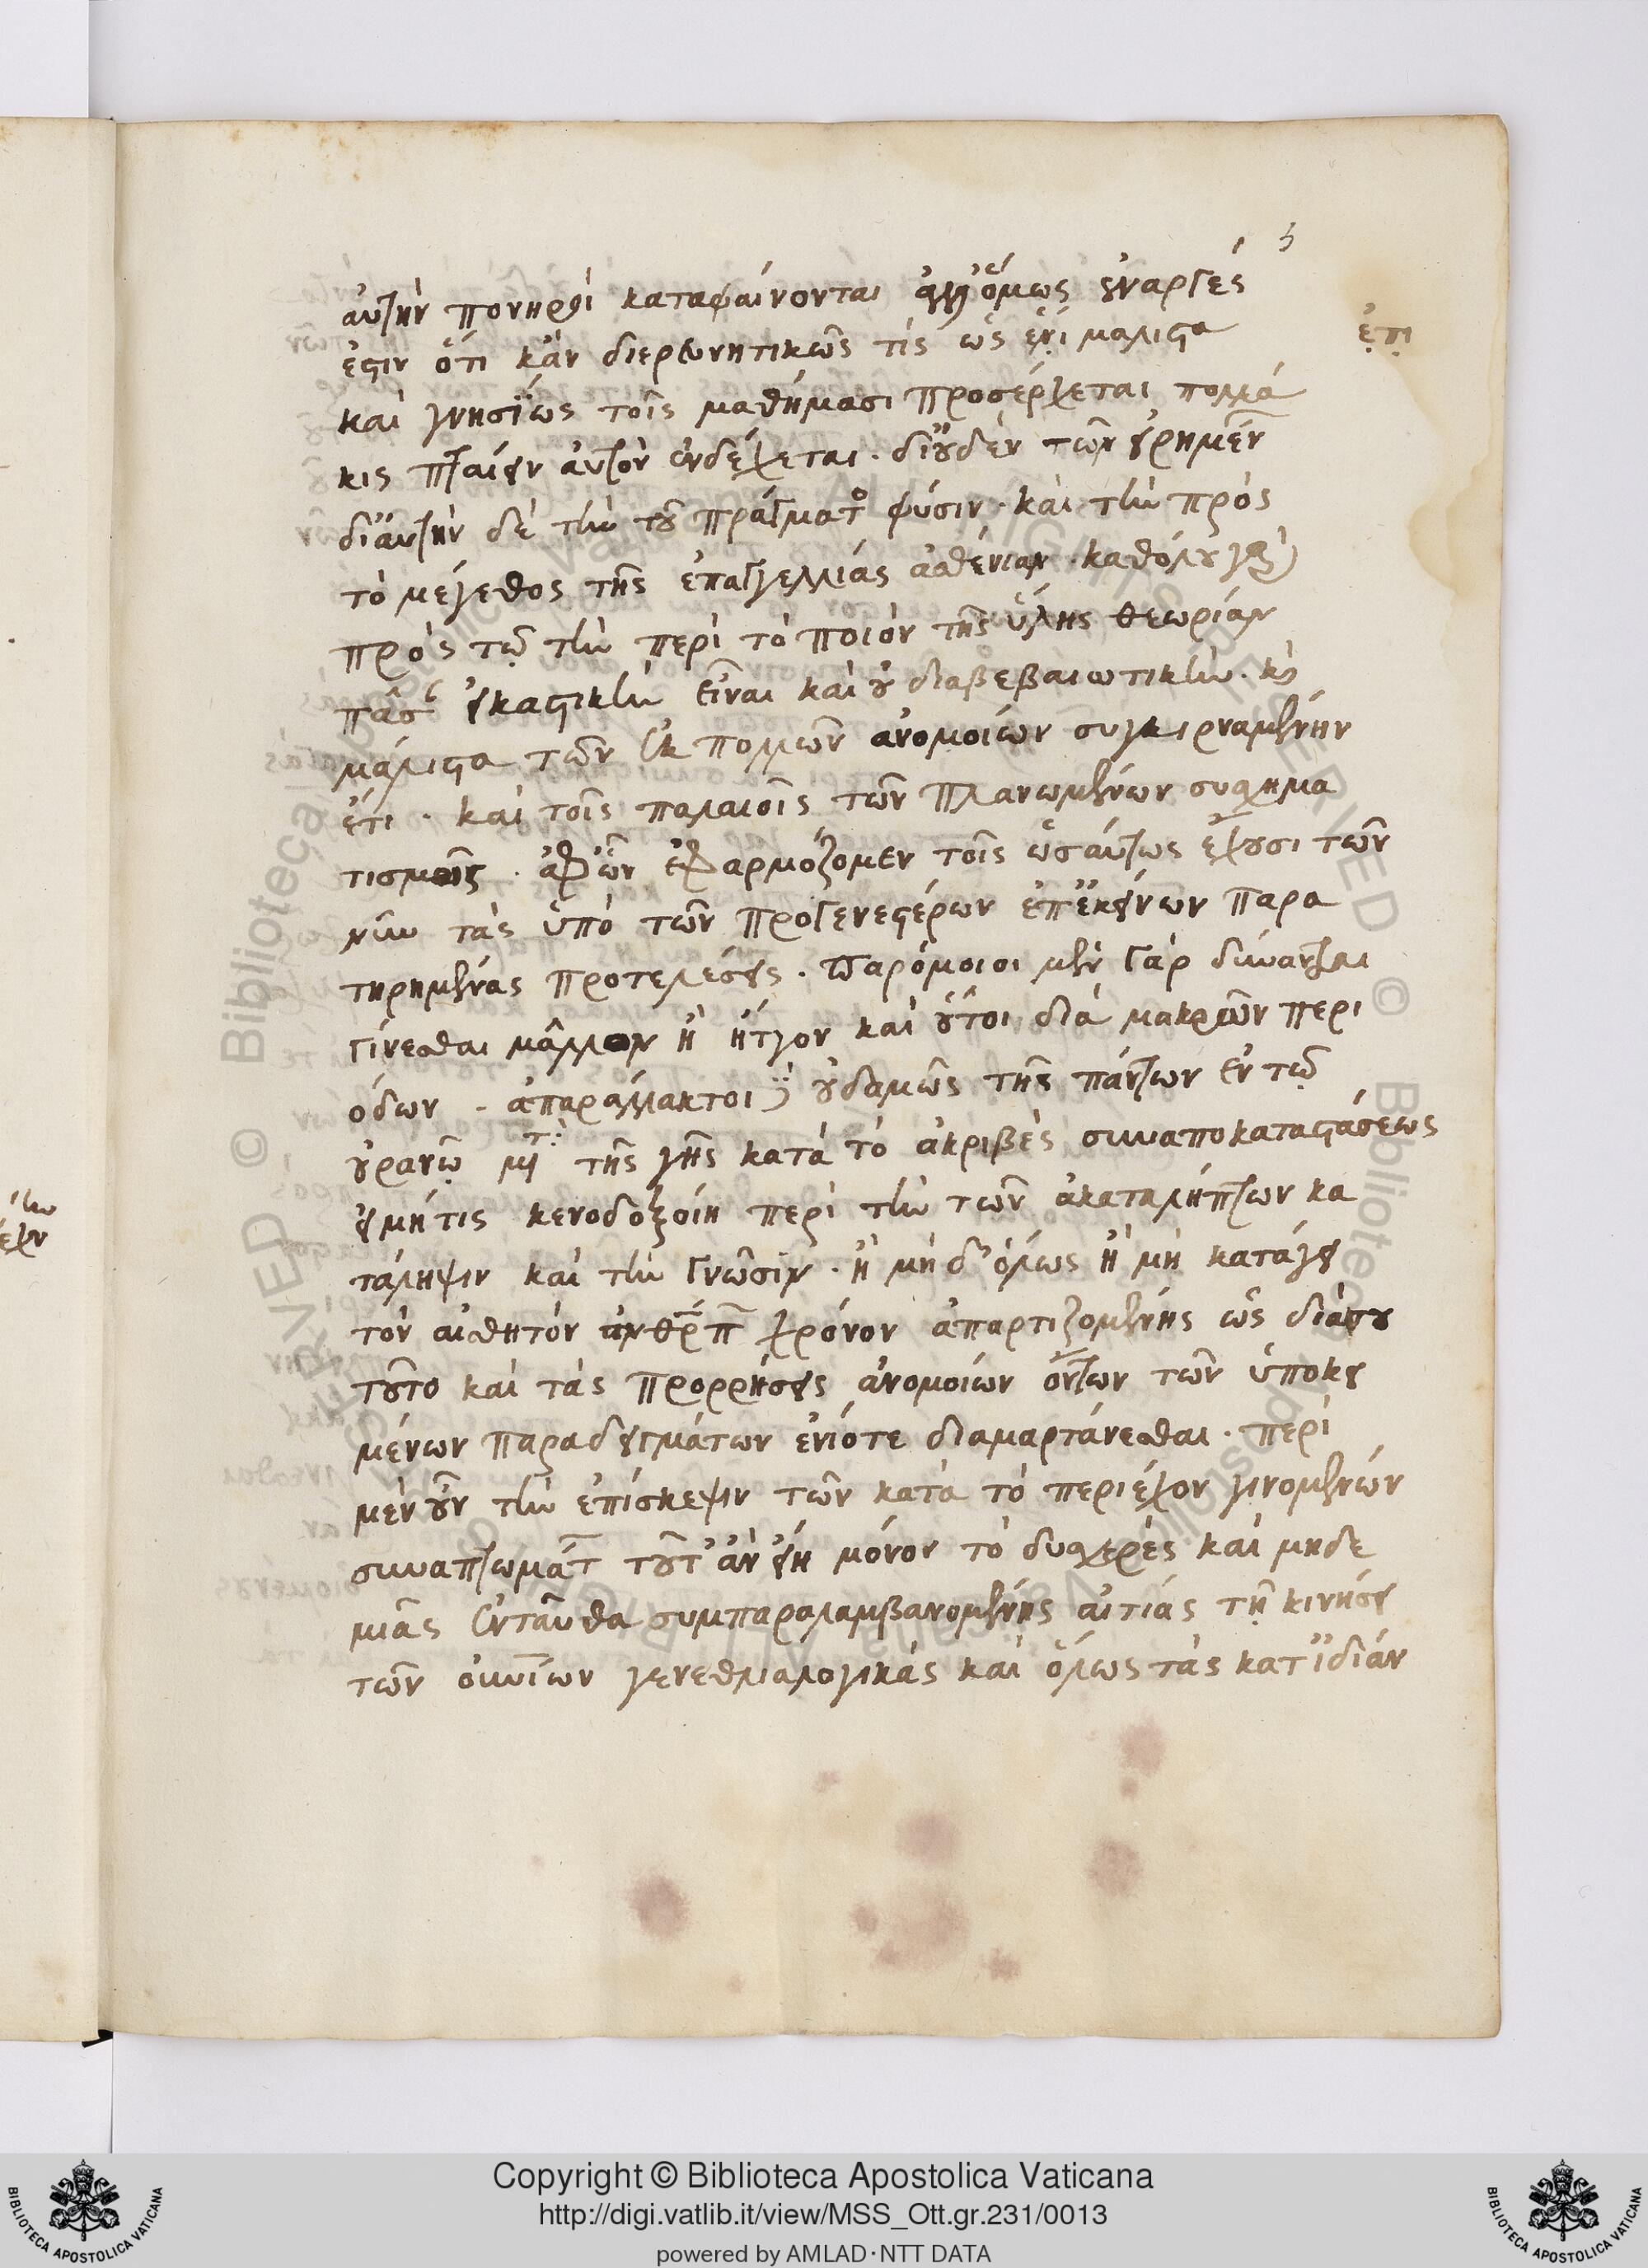 ϛ
αὐτὴν πονηροὶ καταφαίνονται ἀλλ' ὅμως ἐναργές
ἐστιν ὅτι κἂν διερευνητικῶς τίς ὡς ἔνι μάλιστα
ἔτι
καὶ γνησίως τοῖς μαθήμασι προσέρχεται πολλά
κις πταίειν αὐτὸν ἐνδέχεται. δι' οὐδὲν τῶν εἰρημέν
δι' αὐτὴν δὲ τὴν τοῦ πράγματος φύσιν. καὶ τὴν πρὸς
τὸ μέγεθος τῆς ἐπαγγελλίας ἀσθένιαν. καθόλου γὰρ
πρὸς τῷ τὴν περὶ τὸ ποιὸν τῆς ὕλης θεωρίαν
πᾶσ εἰκαστικὴν εἶναι καὶ οὐ διαβεβαιωτικὴν. καὶ
μάλιστα τῶν ἐκ πολλῶν ἀνομοίων συγκιρναμένην
ἔτι. καὶ τοῖς παλαιοῖς τῶν πλανωμένων συσχημα
τισμοῖς. ἀφ' ὧν ἐφαρμόζομεν τοῖς ὡσαύτως ἔχουσι τῶν
νῦν τὰς ὑπὸ τῶν προγενεστέρων ἐπ' ἐκείνων παρα
τηρημένας προτελέσεις. παρόμοιοι μὲν γὰρ δύνανται
γίνεσθαι μᾶλλον ἢ ἧττον καὶ οὗτοι διὰ μακρῶν περι
όδων. ἀπαράλλακτοι δὲ οὐδαμῶς τῆς πάντων ἐν τῷ
οὐρανῷ μετὰ τῆς γῆς κατὰ τὸ ἀκριβὲς συναποκαταστάσεως
εἰ μήτις κενοδοξοίη περὶ τὴν τῶν ἀκαταλήπτων κα
τάληψιν καὶ τὴν γνῶσιν. ἢ μὴ δ' ὅλως ἢ μὴ κατάγε
τὸν αἰσθητὸν ἀνθρπ χρόνον ἀπαρτιζομένης ὡς διὰ του
τοῦτο καὶ τὰς προρρήσεις ἀνομοίων ὄντων τῶν ὑποκει
μένων παραδειγμάτων ἐνίοτε διαμαρτάνεσθαι. περὶ
μὲν οὖν τὴν ἐπίσκεψιν τῶν κατὰ τὸ περιέχον γινομένων
συναπτωμάτ τοῦτ' ἂν εἴη μόνον τὸ δυσχερὲς καὶ μηδε
μιᾶς ἐνταῦθα συμπαραλαμβανομένης αἰτίας τῇ κινήσει
τῶν οὐνίων γενεθλιαλογικὰς καὶ ὅλως τὰς κατ' ἰδίαν
Copyright © Biblioteca Apostolica Vaticana
http://digi.vatlib.it/view/MSS_Ott.gr.231/0013
powered by AMLAD·NTT DATA